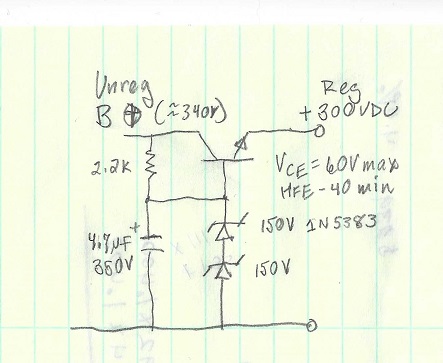 Unreg
B ⊕ (≈340V)
Reg
+300VDC
2.2K
VCE = 60V max
HFE - 40 min
+
4.7µF
350V
150V 1N5383
150V